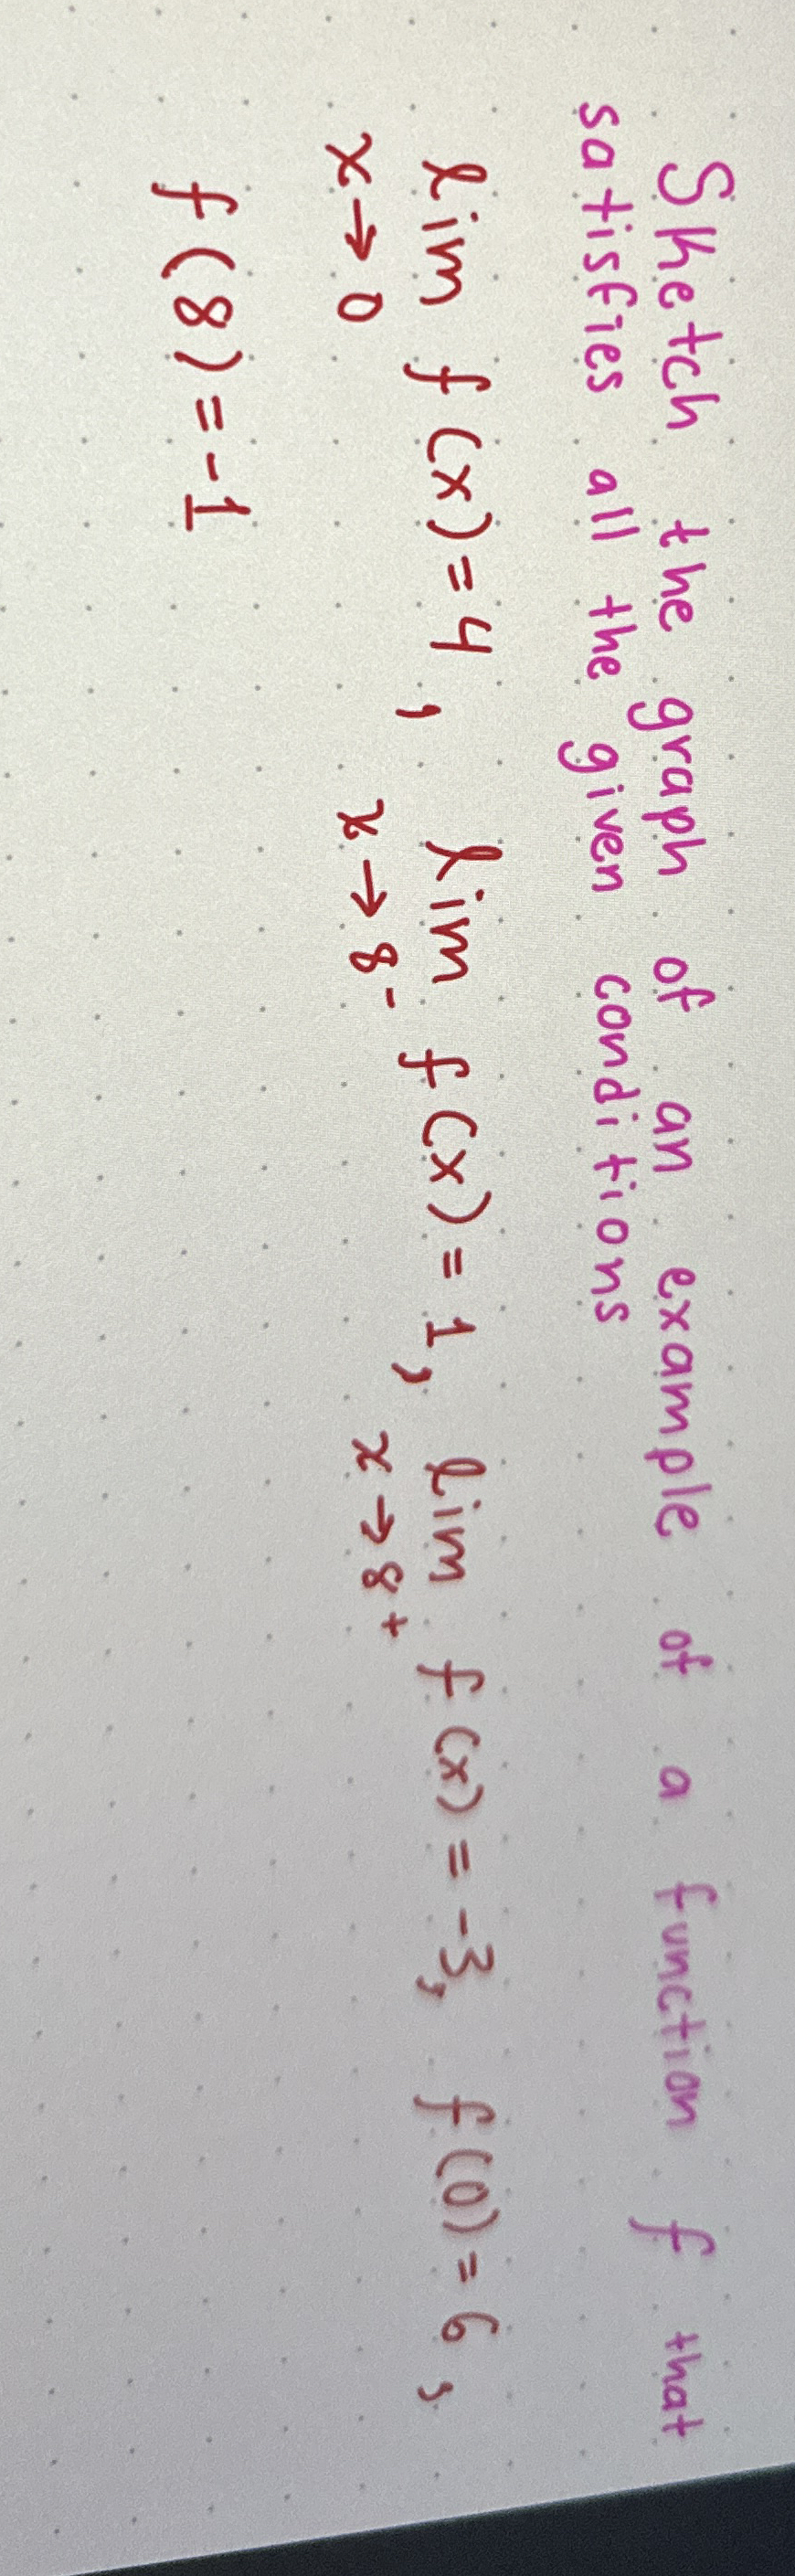 Sketch the graph of an example of a function f that
satisfies all the given conditions
lim f(x) = 4, lim f(x) = 1, lim f(x) = -3, f(0) = 6,
x→0 x→8- x→8+
f(8) = -1